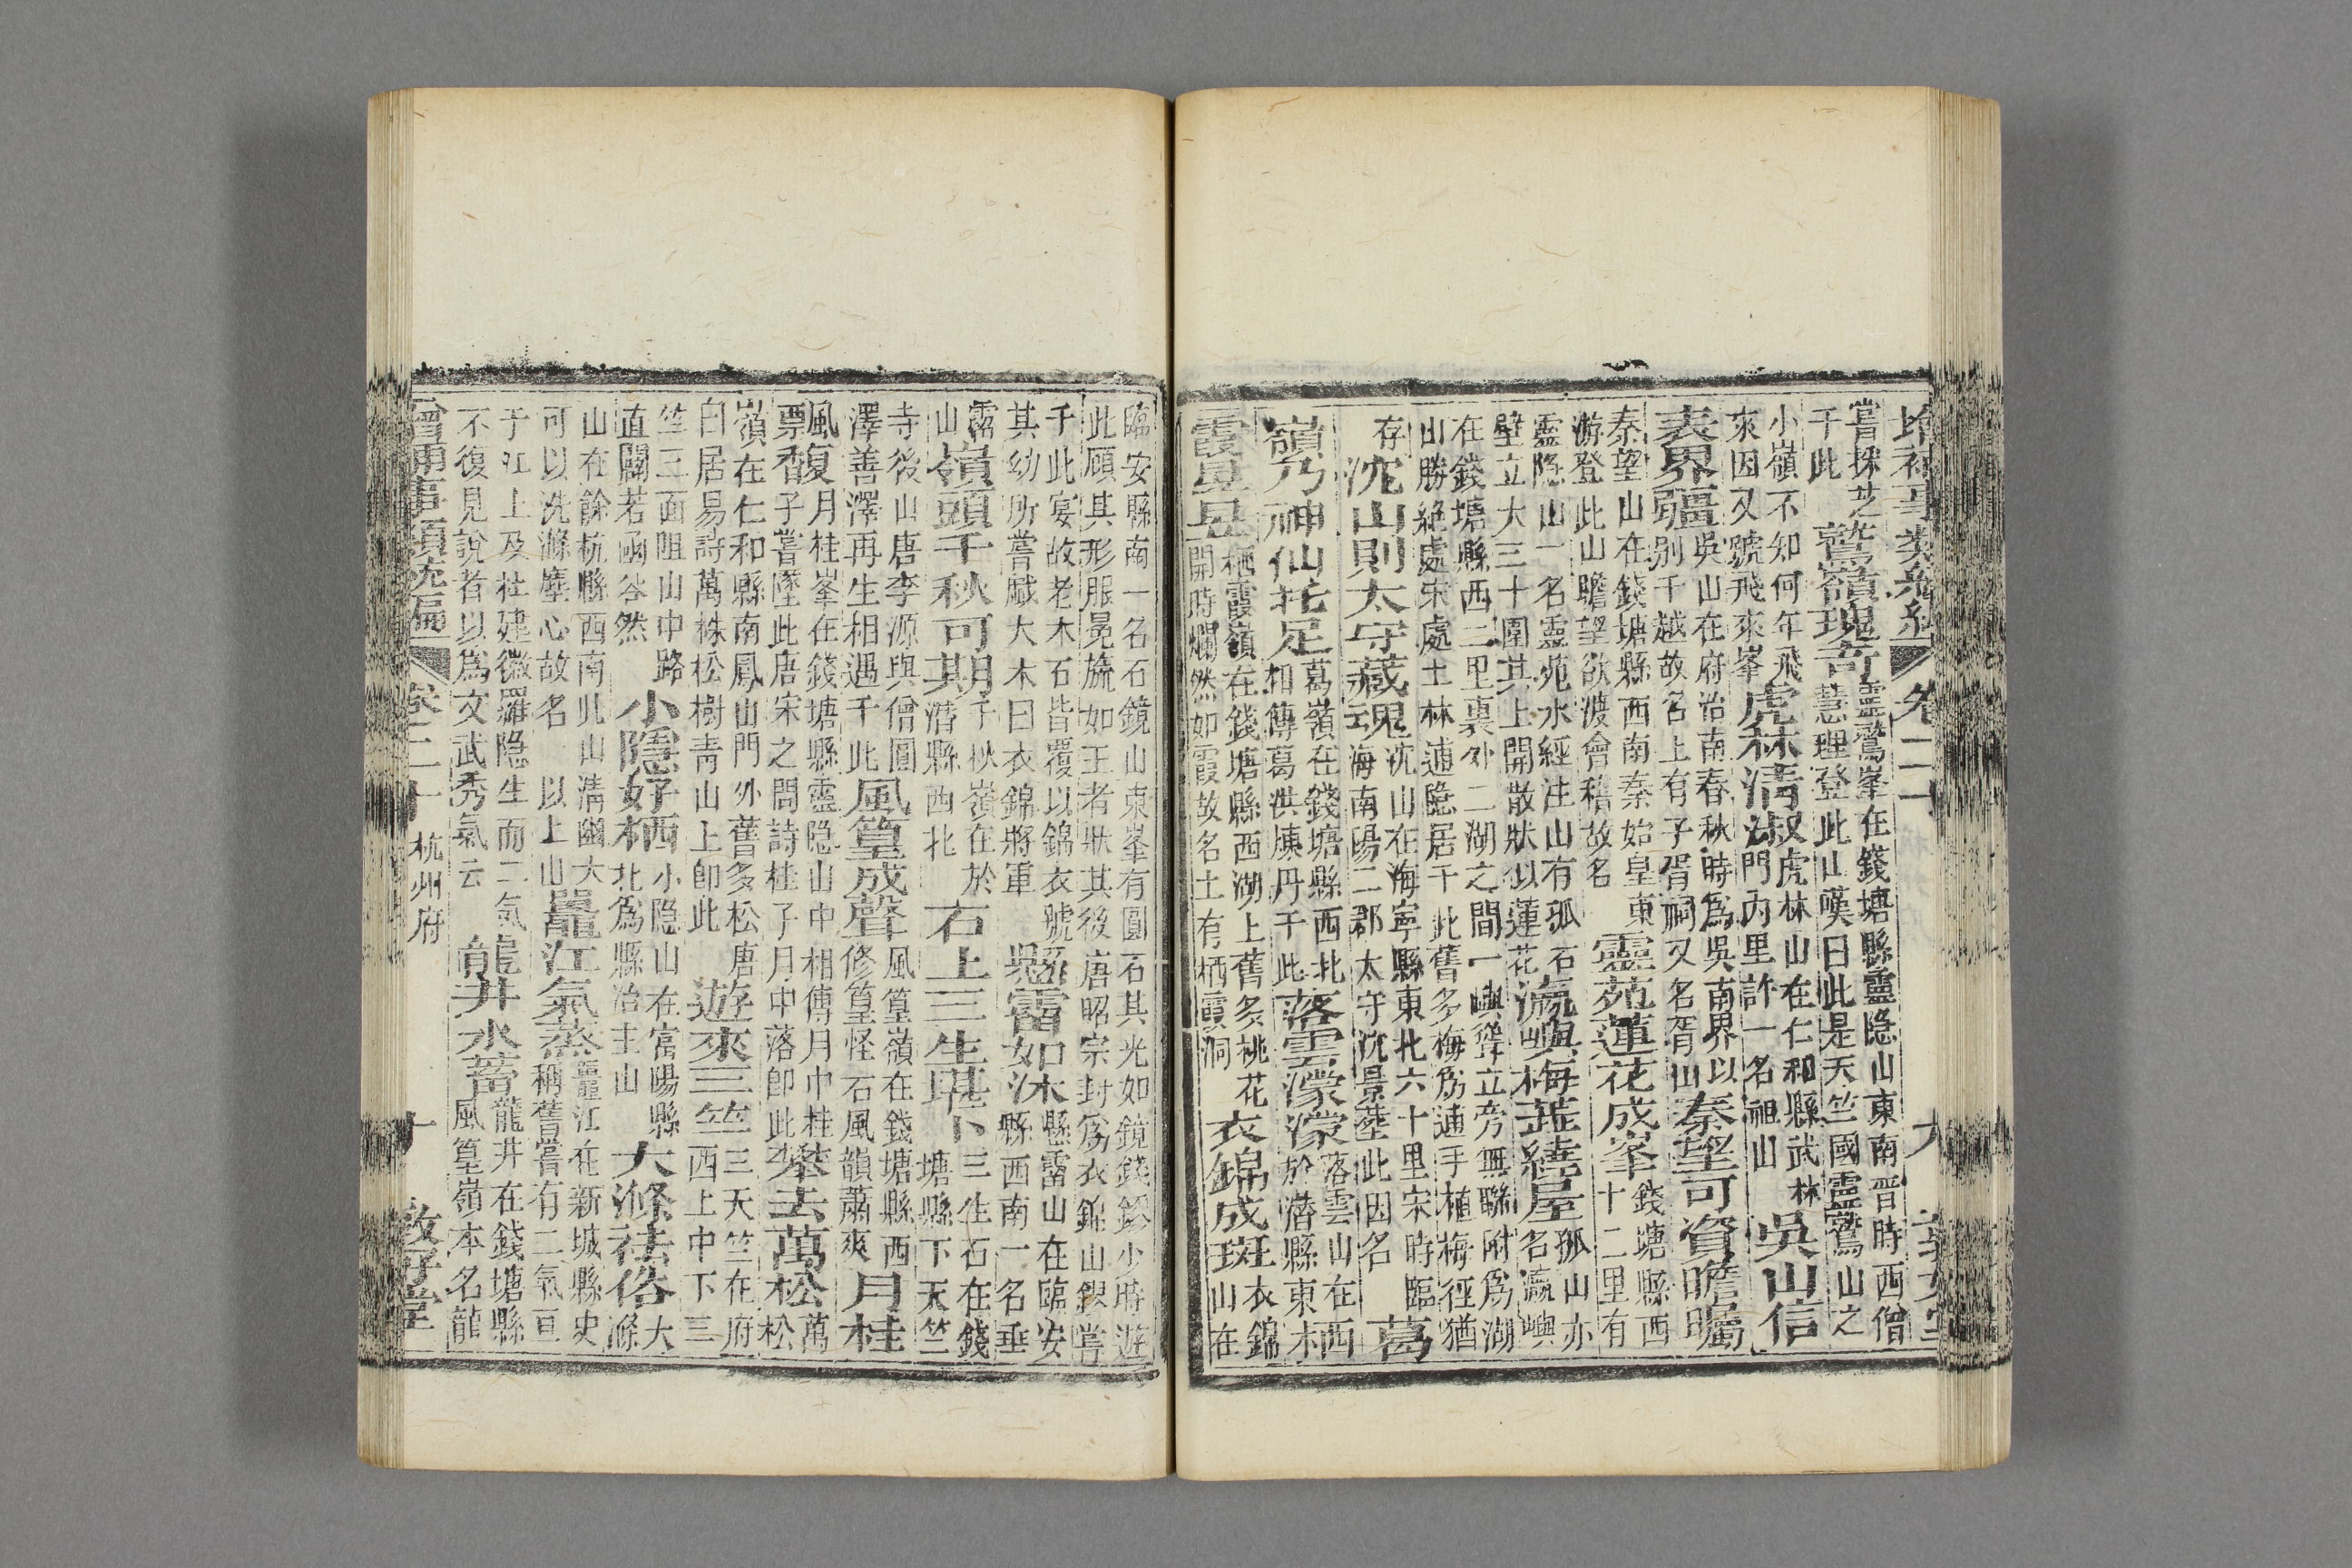 嘗採芝
千此
鷲嶺瑰奇
靈鷲峯在錢塘縣靈隐山東南晋時西僧
慧理登此山嘆曰此是天竺國靈鷲山之
小嶺不知何年飛
來因又號飛來峯
虎林清淑
虎林山在仁和縣武林
門內里許一名祖山
吳山信
表界疆
吳山在府治南春秋時爲吳南界以
别千越故名上有子胥祠又名胥山
秦望可資瞻矚
秦望山在錢塘縣西南秦始皇東
游登此山瞻望欲渡會稽故名
靈苑蓮花成峯
錢塘縣西
十二里有
靈隐山一名靈苑水經注山有孤石
壁立大三十圍其上開散狀似蓮花
瀛嶼梅蕋繞屋
孤山亦
名瀛嶼
在錢塘縣西二里裏外二湖之間一嶼聳立旁無聯附爲湖
山勝絕處宋處土林逋隐居千此舊多梅爲逋手植梅徑猶
存
沈山則太守藏魂
沈山在海寧縣東北六十里宋時臨
海南陽二郡太守沈景塟此因名
葛
嶺乃神仙托足
葛嶺在錢塘縣西北
相傳葛洪煉丹千此
落雲濛濛
落雲山在西
於潛縣東木
栖
霞昱昱
栖霞嶺在錢塘縣西湖上舊多桃花
開時爛然如霞故名土有栖霞洞
衣錦成斑
衣錦
山在
臨安縣南一名石鏡山東峯有圓石其光如鏡錢鏐少時遊
此顧其形服冕旒如王者狀其後唐昭宗封爲衣錦山鏐嘗
千此宴故老木石皆覆以錦衣號
其幼所嘗戱大木曰衣錦將軍
懸霤如沐
懸霤山在臨安
縣西南一名垂
霤
山
嶺頭千秋可期
千秋嶺在於
潛縣西北
石上三生堪卜
三生石在錢
塘縣下天竺
寺後山唐李源與僧圓
澤善澤再生相遇千此
風篁成聲
風篁嶺在錢塘縣西
修篁怪石風韻蕭爽
月桂
風
票馥
月桂峯在錢塘縣靈隐山中相傳月中桂
子嘗墜此唐宋之問詩桂子月中落卽此
攀去萬松
萬
松
嶺在仁和縣南鳳山門外舊多松唐
白居易詩萬株松樹靑山上卽此
遊來三竺
三天竺在府
西上中下三
竺三面阻山中路
直闢若函谷然
小隱好栖
小隐山在富陽縣
北爲縣治主山
大滌祛俗
大
滌
山在餘杭縣西南此山淸幽大
可以洗滌塵心故名 以上山
鼉江氣蒸
鼉江在新城縣史
稱舊嘗有二氣亘
于江上及杜建徽羅隐生而二氣
不復見說者以爲文武秀氣云
龍井水蓄
龍井在錢塘縣
風篁嶺本名龍
卷二十 杭州府 十